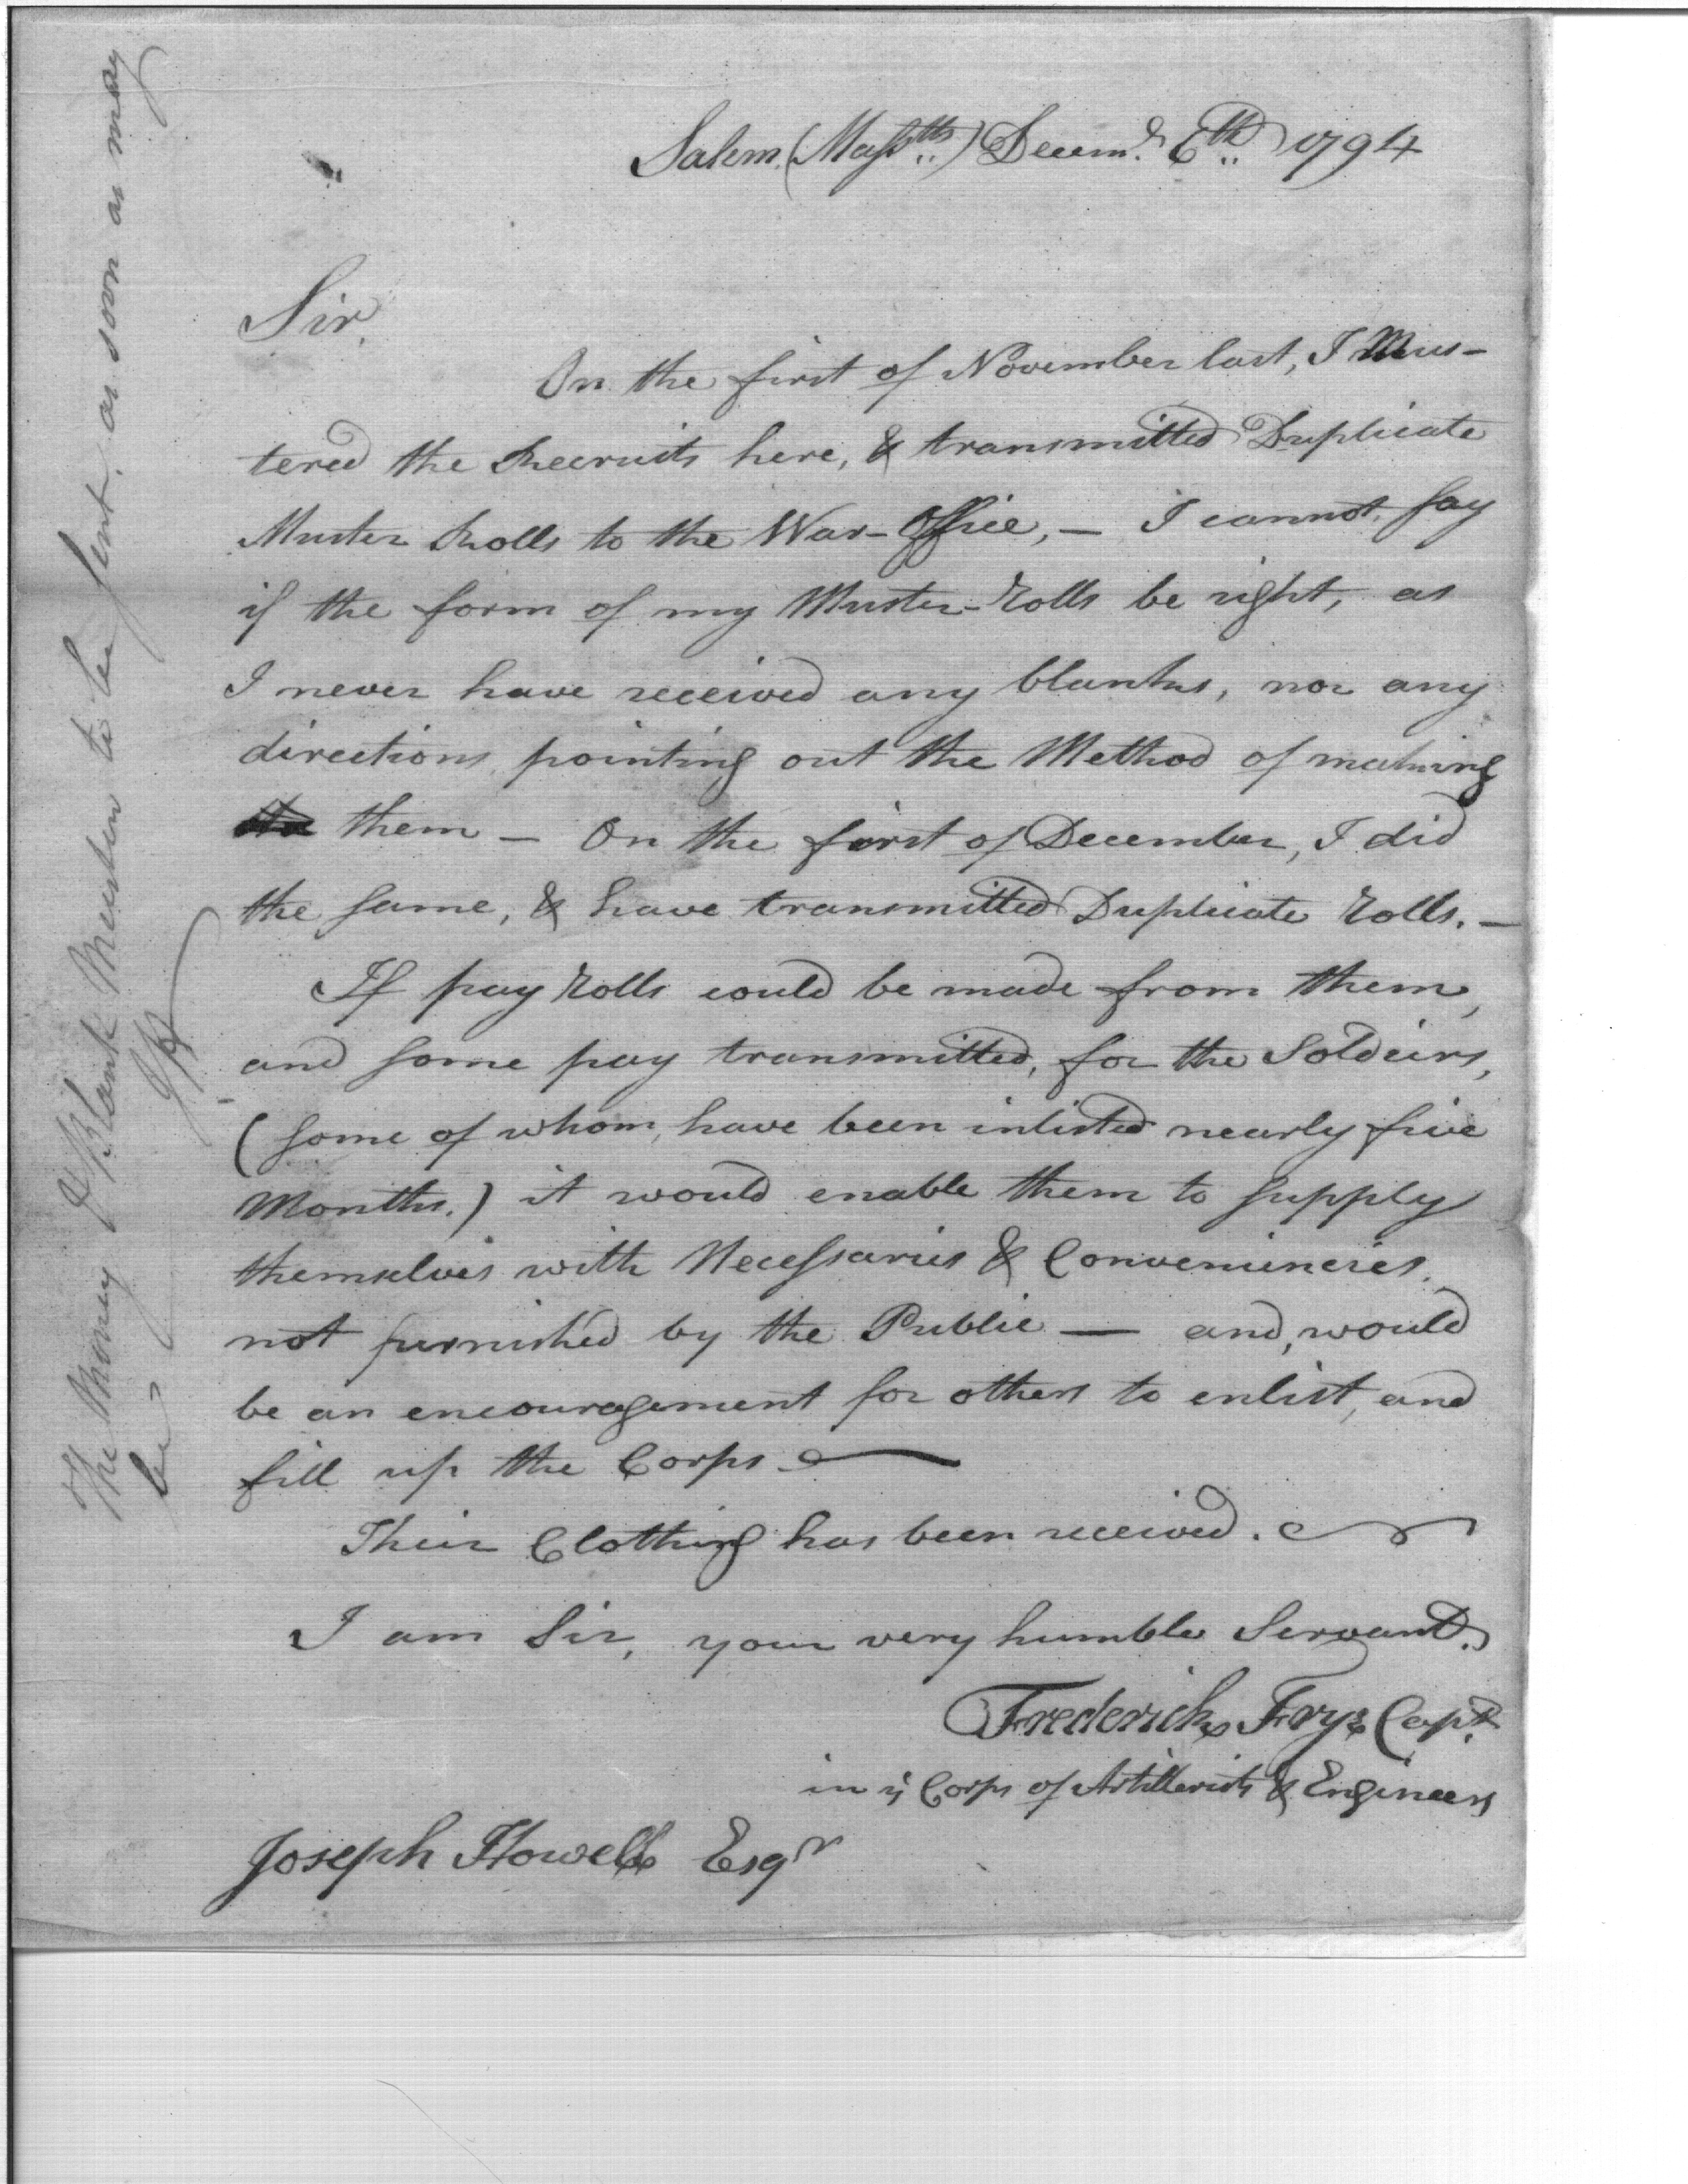 Salem (Masstts) Decemr 6th 1794
Sir,
On the first of November last, I Mus-
tered the Recruits here, & transmitted Duplicate
Muster Rolls to the War-Office, — I cannot say
if the form of my Muster-Rolls be right, as
I never have received any blanks, nor any
directions pointing out the Method of making
them — On the first of December, I did
the same, & have transmitted Duplicate Rolls. —
If pay Rolls could be made from them,
and some pay transmitted, for the Soldeirs,
(some of whom, have been inlisted nearly five
Months.) it would enable them to supply
themselves with Necessaries & Conveniencies
not furnished by the Public — and, would
be an encouragement for others to enlist, and
fill up the Corps —
Their Clothing has been received.
I am Sir, your very humble Servant.
Frederick Frye Capt.
in ye Corps of Artillerists & Engineers
Joseph Howell Esqr
The Money & Blank Muster to be sent, as soon as may
be